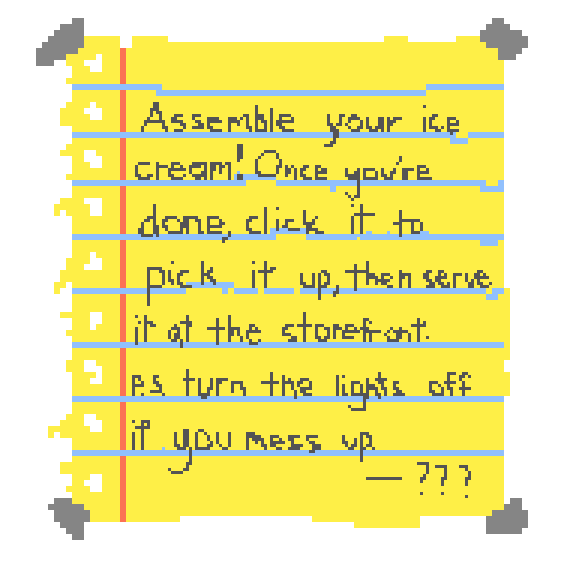 Assemble your ice
cream! Once you're
done, click it to
pick it up, then serve
it at the storefront.
P.S turn the lights off
if you mess up
— ???